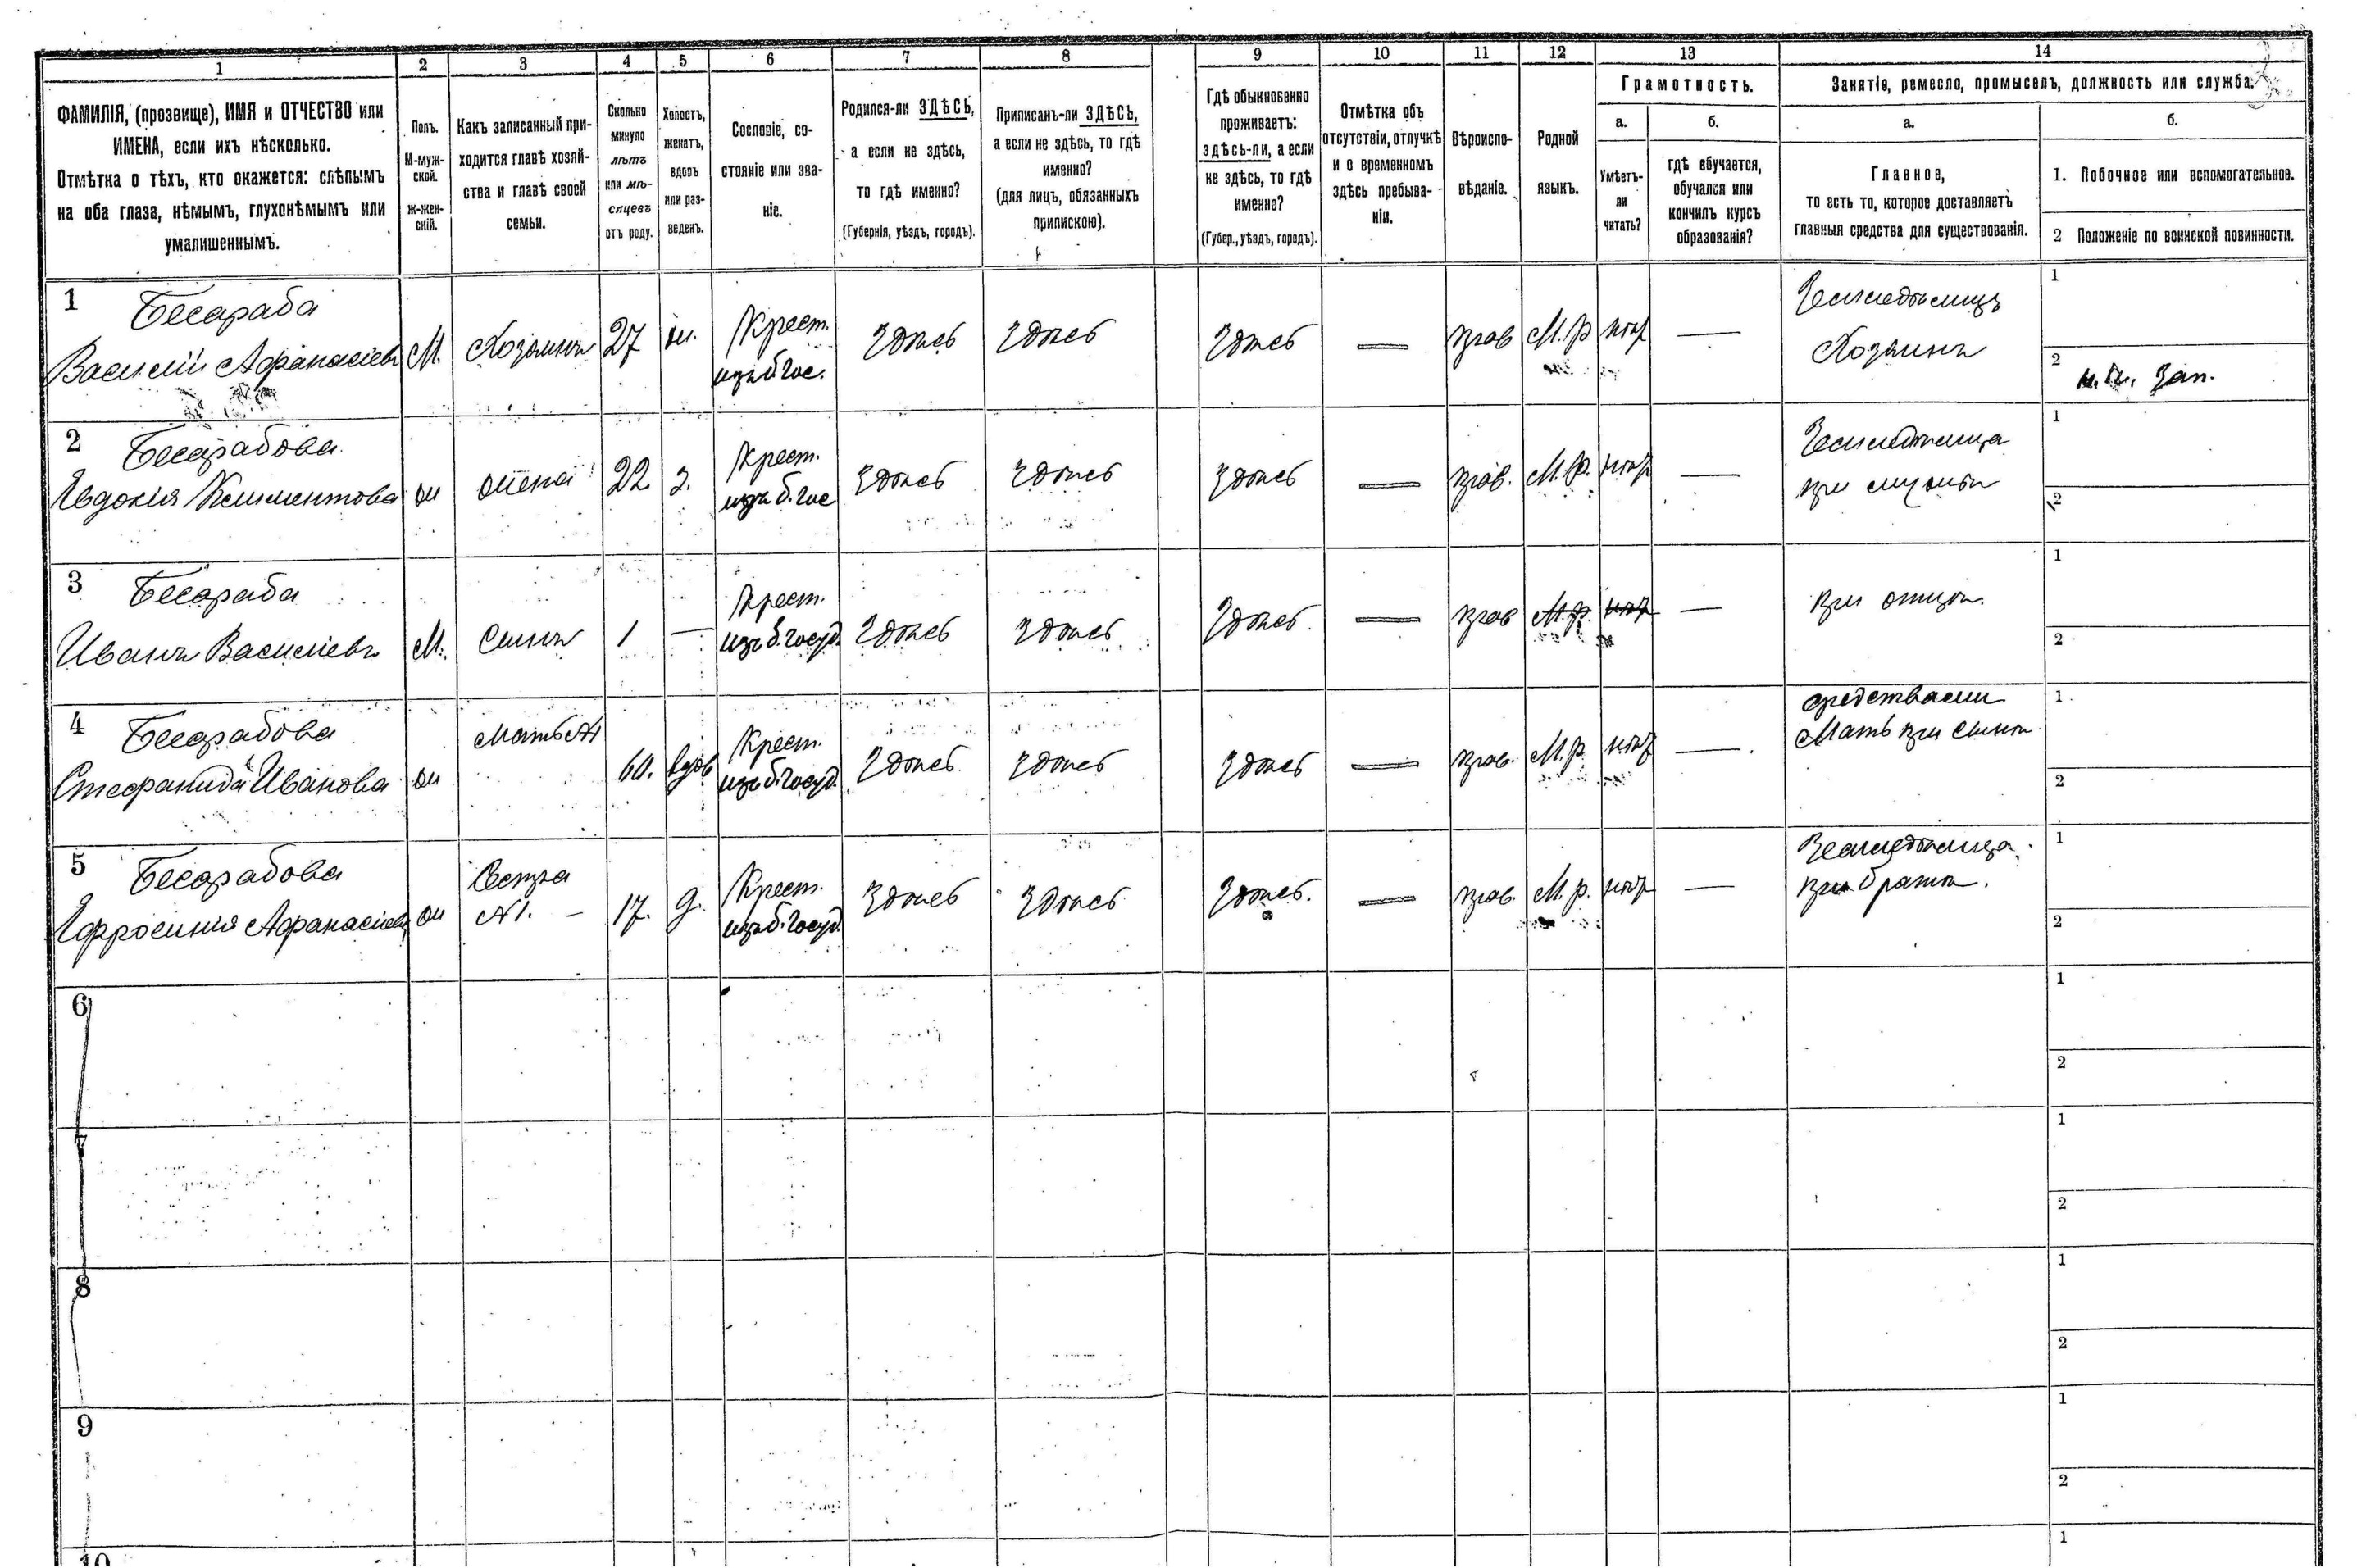 1 2 3 4 5 6 7 8 9 10 11 12 13 14
ФАМИЛІЯ, (прозвище), ИМЯ и ОТЧЕСТВО или
ИМЕНА, если ихъ нѣсколько.
Отмѣтка о тѣхъ, кто окажется: слѣпымъ
на оба глаза, нѣмымъ, глухонѣмымъ или
умалишеннымъ.
Полъ.
М-муж-
ской.
Ж-жен-
скій.
Какъ записанный при-
ходится главѣ хозяй-
ства и главѣ своей
семьи.
Сколько
минуло
лѣтъ
или мѣ-
сяцевъ
отъ роду.
Холостъ,
женатъ,
вдовъ
или раз-
веденъ.
Сословіе, со-
стояніе или зва-
ніе.
Родился-ли ЗДѢСЬ,
а если не здѣсь,
то гдѣ именно?
(Губернія, уѣздъ, городъ).
Приписанъ-ли ЗДѢСЬ,
а если не здѣсь, то гдѣ
именно?
(для лицъ, обязанныхъ
припискою).
Гдѣ обыкновенно
проживаетъ:
здѣсь-ли, а если
не здѣсь, то гдѣ
именно?
(Губер., уѣздъ, городъ).
Отмѣтка объ
отсутствіи, отлучкѣ
и о временномъ
здѣсь пребыва-
ніи.
Вѣроиспо-
вѣданіе.
Родной
языкъ.
Грамотность.
а.
Умѣетъ-
ли
читать?
б.
гдѣ обучается,
обучался или
кончилъ курсъ
образованія?
Занятіе, ремесло, промыселъ, должность или служба.
а.
Главное,
то есть то, которое доставляетъ
главныя средства для существованія.
б.
1. Побочное или вспомогательное.
2 Положеніе по воинской повинности.
1 Бесараба
Василій Афанасіевъ
М.
Хозяинъ
27
ж.
Крест.
изъ б. гос.
Здѣсь
Здѣсь
Здѣсь
—
прав
М.р
нѣт
—
Земледѣлецъ
Хозяинъ
1
2
Зап.
2 Бесарабова
Евдокія Климентова
ж
жена
22
З.
Крест.
изъ б. гос
Здѣсь
Здѣсь
Здѣсь
—
прав.
М.р.
нѣт
—
Земледѣлица
при мужѣ
1
2
3 Бесараба
Иванъ Василіевъ
М.
Сынъ
1
—
Крест.
изъ б. госуд.
Здѣсь
Здѣсь
Здѣсь.
—
прав
М.р.
нѣт
—
При отцѣ.
1
2
4 Бесарабова
Стефанида Иванова
ж
Мать №1
60.
вдов
Крест.
изъ б. госуд.
Здѣсь
Здѣсь
Здѣсь
—
прав.
М.р.
нѣт
—
средствами
Мать при сынѣ
1
2
5 Бесарабова
Ефросинія Афанасіева
ж
Сестра
№1. —
17.
д.
Крест.
изъ б. госуд.
Здѣсь
Здѣсь
Здѣсь.
—
прав.
М.р.
нѣт
—
Земледѣлица
при братѣ.
1
2
6
1
2
7
1
2
8
1
2
9
1
2
10
1